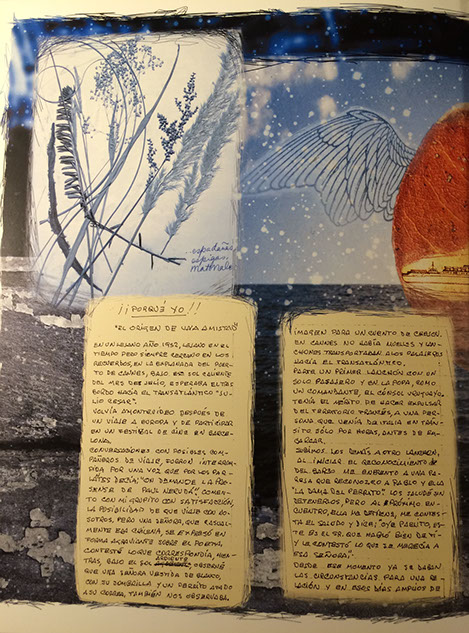 ...espadañas
espigas,
Matthiola
¡¡PORQUÉ YO!!
"EL ORIGEN DE UNA AMISTAD"
EN UN LEJANO AÑO 1952, LEJANO EN EL
TIEMPO PERO SIEMPRE CERCANO EN LOS
RECUERDOS, EN LA EXPLANADA DEL PUER-
TO DE CANNES, BAJO EL SOL CALIENTE
DEL MES DE JULIO, ESPERABA EL TRAS
BORDO HACIA EL TRANSATLÁNTICO "JU-
LIO CESAR".
VOLVÍA A MONTEVIDEO DESPUÉS DE
UN VIAJE A EUROPA Y DE PARTICIPAR
EN UN FESTIVAL DE CINE EN BARCE-
LONA.
CONVERSACIONES CON POSIBLES COM-
PAÑEROS DE VIAJE, FUERON INTERRUM-
PIDA POR UNA VOZ QUE POR LOS PAR-
LANTES DECÍA; "ON DEMANDE LA PRE-
SENSE DE PAUL NERUDÁ", COMEN-
TO CON MI GRUPITO CON SATISFACCIÓN,
LA POSIBILIDAD DE QUE VIAJE CON NO-
SOTROS, PERO UNA SEÑORA, QUE CASUAL-
MENTE ERA CHILENA, SE EXPRESÓ EN
FORMA AGRAVIANTE SOBRE EL POETA,
CONTESTÉ LO QUE CORRESPONDÍA, MIEN-
TRAS, BAJO EL SOL ARDIENTE, OBSERVÉ
QUE UNA SEÑORA VESTIDA DE BLANCO,
CON SU SOMBRILLA Y UN PERRITO ATADO
A SU CORREA, TAMBIÉN NOS OBSERVABA.
IMAGEN PARA UN CUENTO DE CHEJOV.
EN CANNES NO HABÍA MUELLES Y LAN-
CHONES TRANSPORTABAN A LOS PASAJEROS
HACIA EL TRANSATLÁNTICO.
PARTE UN PRIMER LANCHÓN CON UN
SOLO PASAJERO Y EN LA POPA, COMO
UN COMANDANTE, EL CÓNSUL URUGUAYO.
TENÍA EL MÉRITO DE HACER EXPULSAR
DEL TERRITORIO FRANCÉS, A UNA PER-
SONA QUE VENÍA DE ITALIA EN TRÁN-
SITO SÓLO POR HORAS, ANTES DE EM-
BARCAR.
SUBIMOS LOS DEMÁS A OTRO LANCHÓN,
AL INICIAR EL RECONOCIMIENTO
DEL BARCO ME ENFRENTO A UNA PA-
REJA QUE RECONOZCO A PABLO Y ELLA
"LA DAMA DEL PERRITO". LOS SALUDÉ SIN
DETENERME, PERO AL PRÓXIMO EN-
CUENTRO, ELLA ME DETIENE, ME CONTES-
TA EL SALUDO Y DICE; "OYE PABLITO, ES-
TE ES EL SR. QUE HABLÓ BIEN DE TI
Y LE CONTESTÓ LO QUE SE MERECÍA A
ESA SEÑORA".
DESDE ESE MOMENTO YA SE DABAN
LAS CIRCUNSTANCIAS. PARA UNA RE-
LACIÓN Y EN ESOS DÍAS AMPLIOS DE